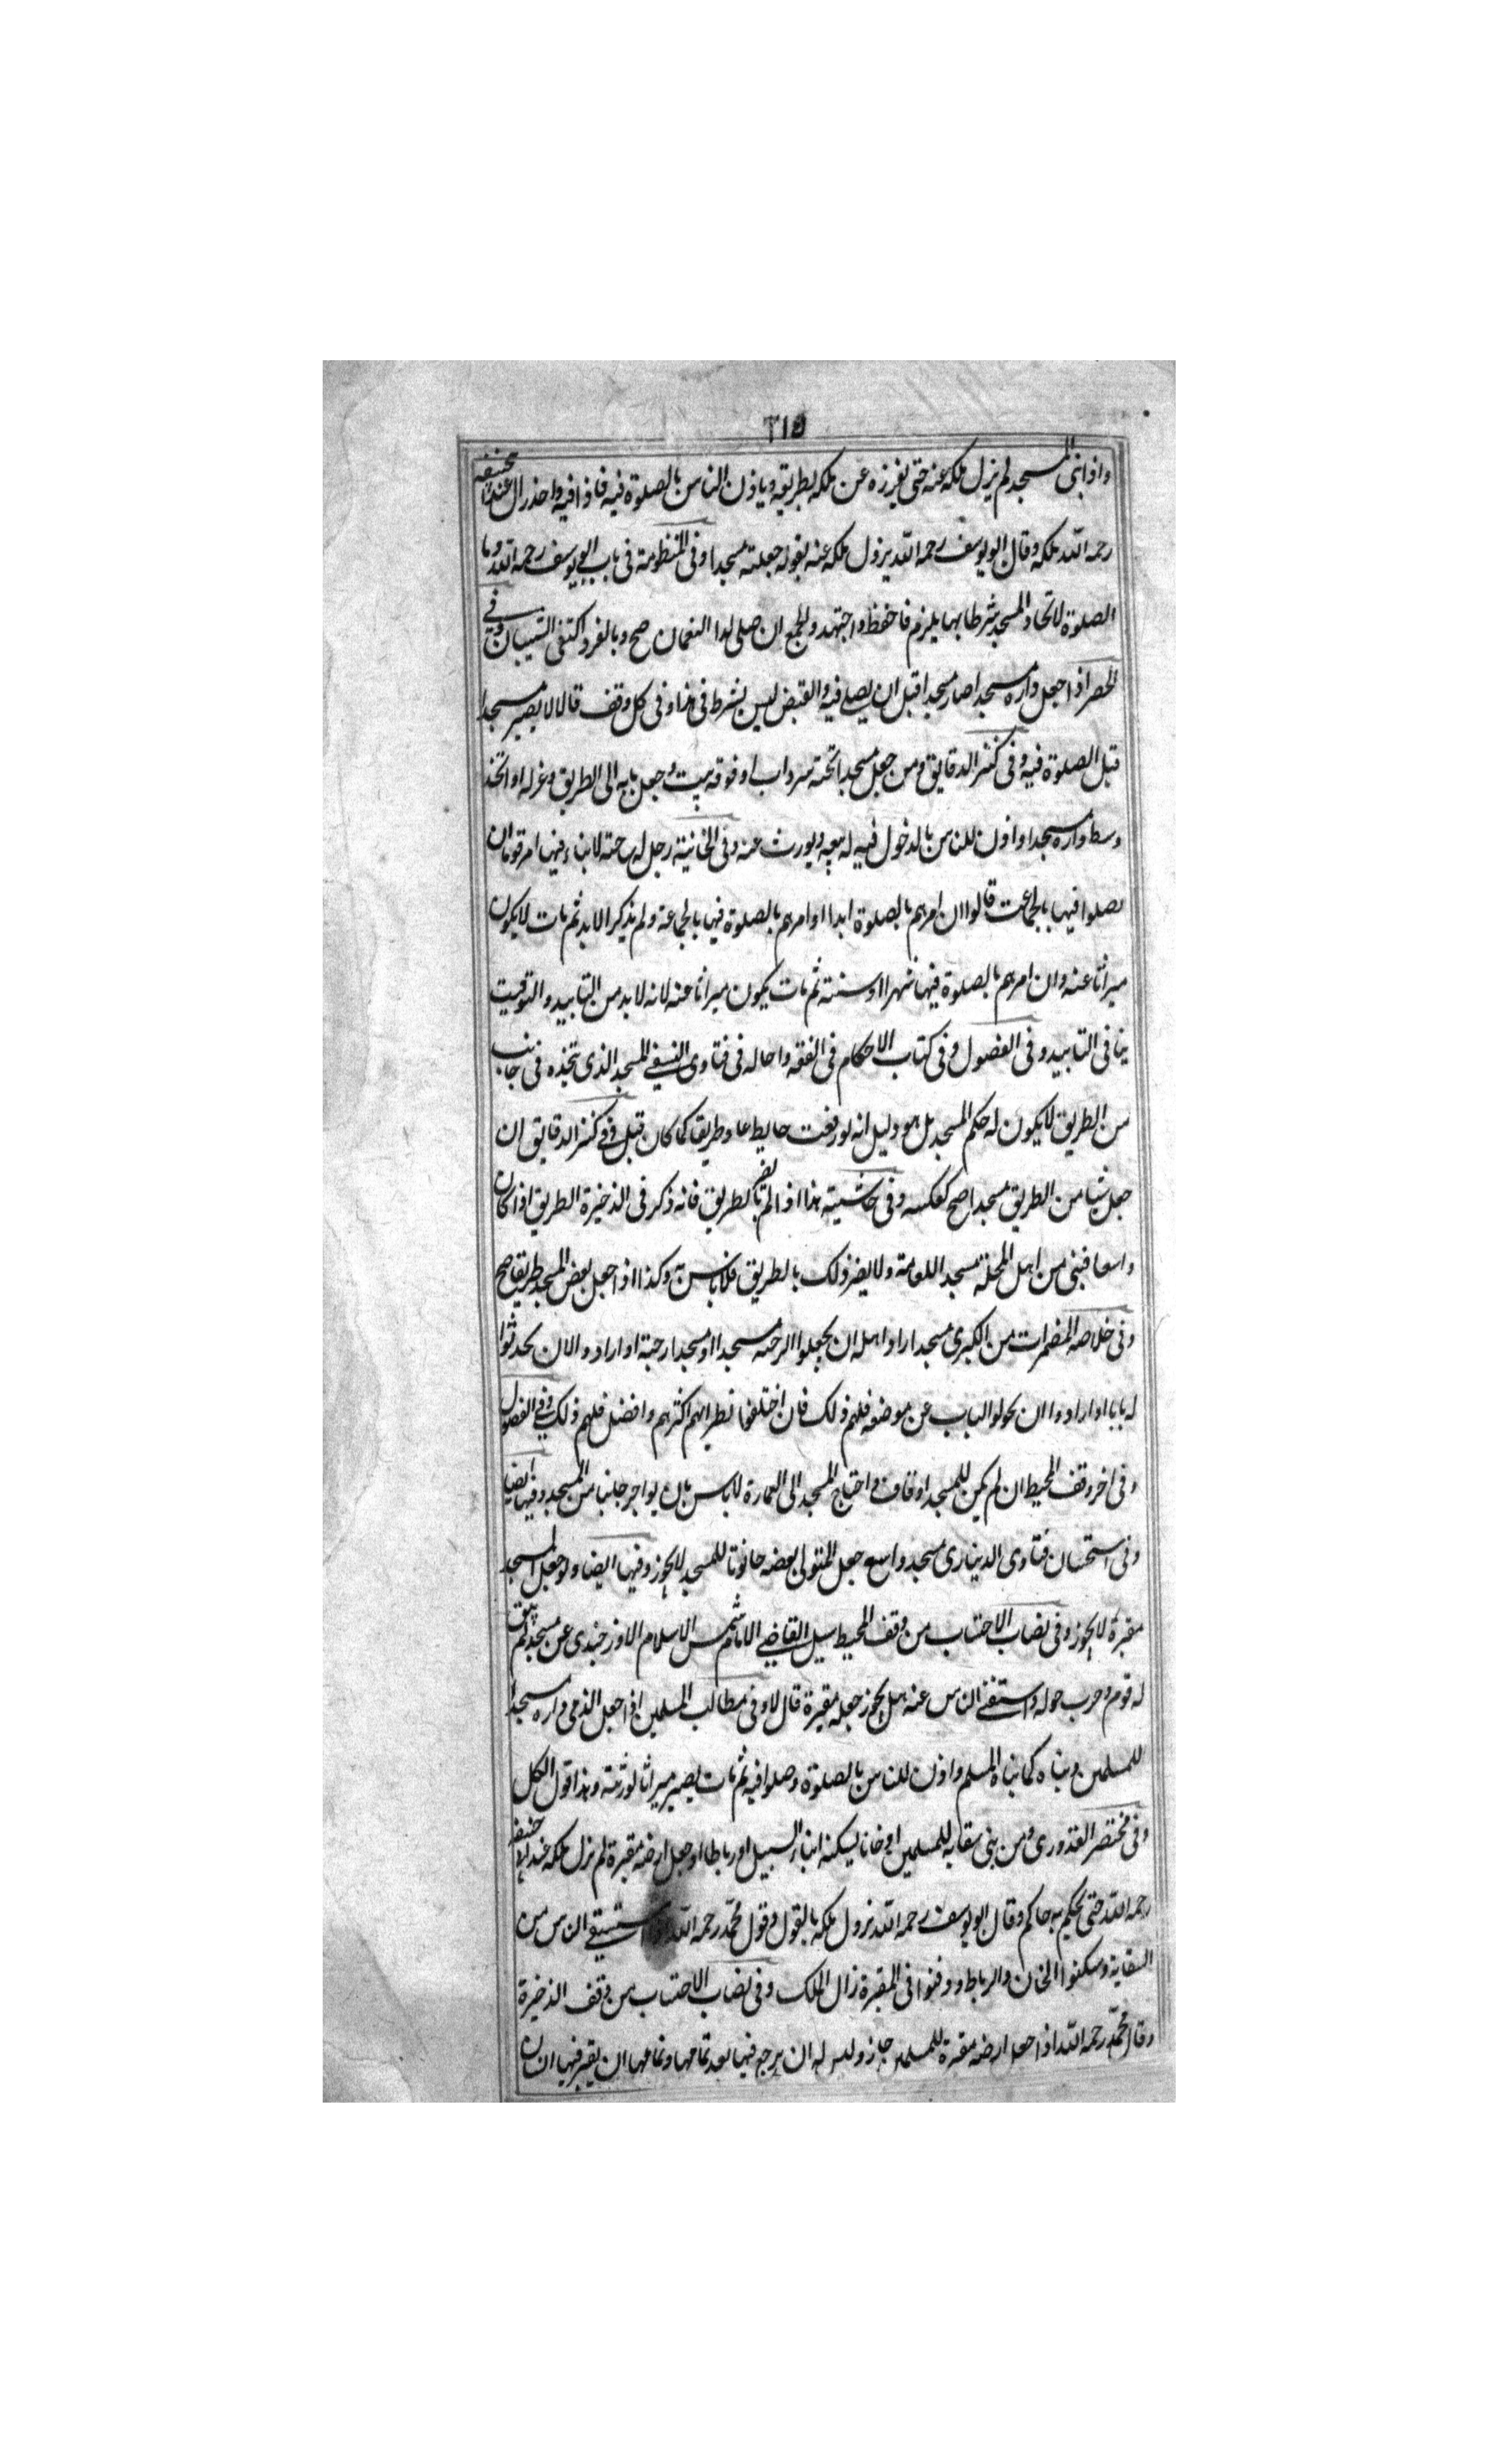 ٢١٥
واذا بنى المسجد لم يزل ملكه عنه حتى يفرزه عن ملكه بطريقه وياذن الناس بالصلوة فيه فاذا فيه واحد زال عند ابيحنيفه
رحمه الله ملكه وقال ابو يوسف رحمه الله يزول ملكه عنه بقوله جعلته مسجدا وفى المنظومة فى باب ابى يوسف رحمه الله وما
الصلوة لاتخاذ المسجد شرطا بها يلزم فاحفظ واجتهد والجمع ان صلى لدا النعمان صح وبالفرد اكتفى الشيبان وفى
الحصر اذا جعل داره مسجدا صار مسجدا قبل ان يصلى فيه والقبض ليس بشرط فى هذا وفى كل وقف قالا لا يصير مسجدا
قبل الصلوة فيه وفى كنز الدقايق ومن جعل مسجدا تحته سرداب او فوقه بيت وجعل بابه الى الطريق وعزله او اتخذ
وسط داره مسجدا واذن للناس بالدخول فيه له بيعه ويورث عنه وفى الخانية رجل له ساحة لا بناء فيها امر قوما ان
يصلوا فيها بالجماعت قالوا ان امرهم بالصلوة ابدا او امرهم بالصلوة فيها بالجماعة ولم يذكر الابد ثم مات لا يكون
ميراثا عنه وان امرهم بالصلوة فيها شهرا او سنة ثم مات يكون ميراثا عنه لانه لابد من التابيد والتوقيت
ينافى التابيد وفى الفصول وفى كتاب الاحكام فى الفقه واحاله فى فتاوى النسفى المسجد الذى تتخذه فى جانب
من الطريق لا يكون له حكم المسجد بل هو دليل انه لو رفعت حايطه عاد طريقا كما كان قبل وفى كنز الدقايق ان
جعل شيا من الطريق مسجدا صح كعكسه وفى حاشيته هذا اذا لم يضر بالطريق فانه ذكر فى الذخيرة الطريق اذا كان
واسعا فبنى من اهل المحلة مسجدا للعامة ولا يضر ذلك بالطريق فلا باس به وكذا اذا جعل بعض المسجد طريقا صح
وفى خلاصه المضمرات من الكبرى مسجد اراد اهله ان يجعلوا الرحبه مسجدا او مسجدا رحبة او ارادوا الان يحدثوا
له بابا او ارادوا ان يحولوا الباب عن موضعه فلهم ذلك فان اختلفوا نظر ايهم اكثرهم وافضل فلهم ذلك وفى الفصول
وفى اخر وقف المحيط ان لم يكن للمسجد اوقاف واحتاج المسجد الى العمارة لا باس بان يواجر جانبا من المسجد وفيها ايضا
وفى استحسان فتاوى الدينارى مسجد واسع جعل المتولى بعضه حانوتا للمسجد لا يجوز وفيها ايضا ولو جعل المسجد
مقبرة لا يجوز وفى نصاب الاحتساب من وقف المحيط سيل القاضى الامام شمس الاسلام الاوزجندى عن مسجد لم يبق
له قوم وخرب حوله واستغنى الناس عنه هل يجوز جعله مقبرة قال لا وفى مطالب المسلمين اذا جعل الذمى داره مسجدا
للمسلمين وبناه كما بناه المسلم واذن للناس بالصلوة وصلوا فيه ثم مات يصير ميراثا لورثته وهذا قول الكل
وفى مختصر القدورى ومن بنى سقاية للمسلمين او خانا ليسكنه ابناء السبيل او رباطا او جعل ارضه مقبرة لم يزل ملكه عند ابى حنيفه
رحمه الله حتى يحكم به حاكم وقال ابو يوسف رحمه الله يزول ملكه بالقول وقول محمد رحمه الله اذا استسقى الناس من
السقاية وسكنوا الخان والرباط ودفنوا فى المقبرة زال الملك وفى نصاب الاحتساب من وقف الذخيرة
وقال محمد رحمه الله اذا جعل ارضه مقبرة للمسلمين جاز وليس له ان يرجع فيها بعد تمامها وتمامها ان يقبر فيها انسان